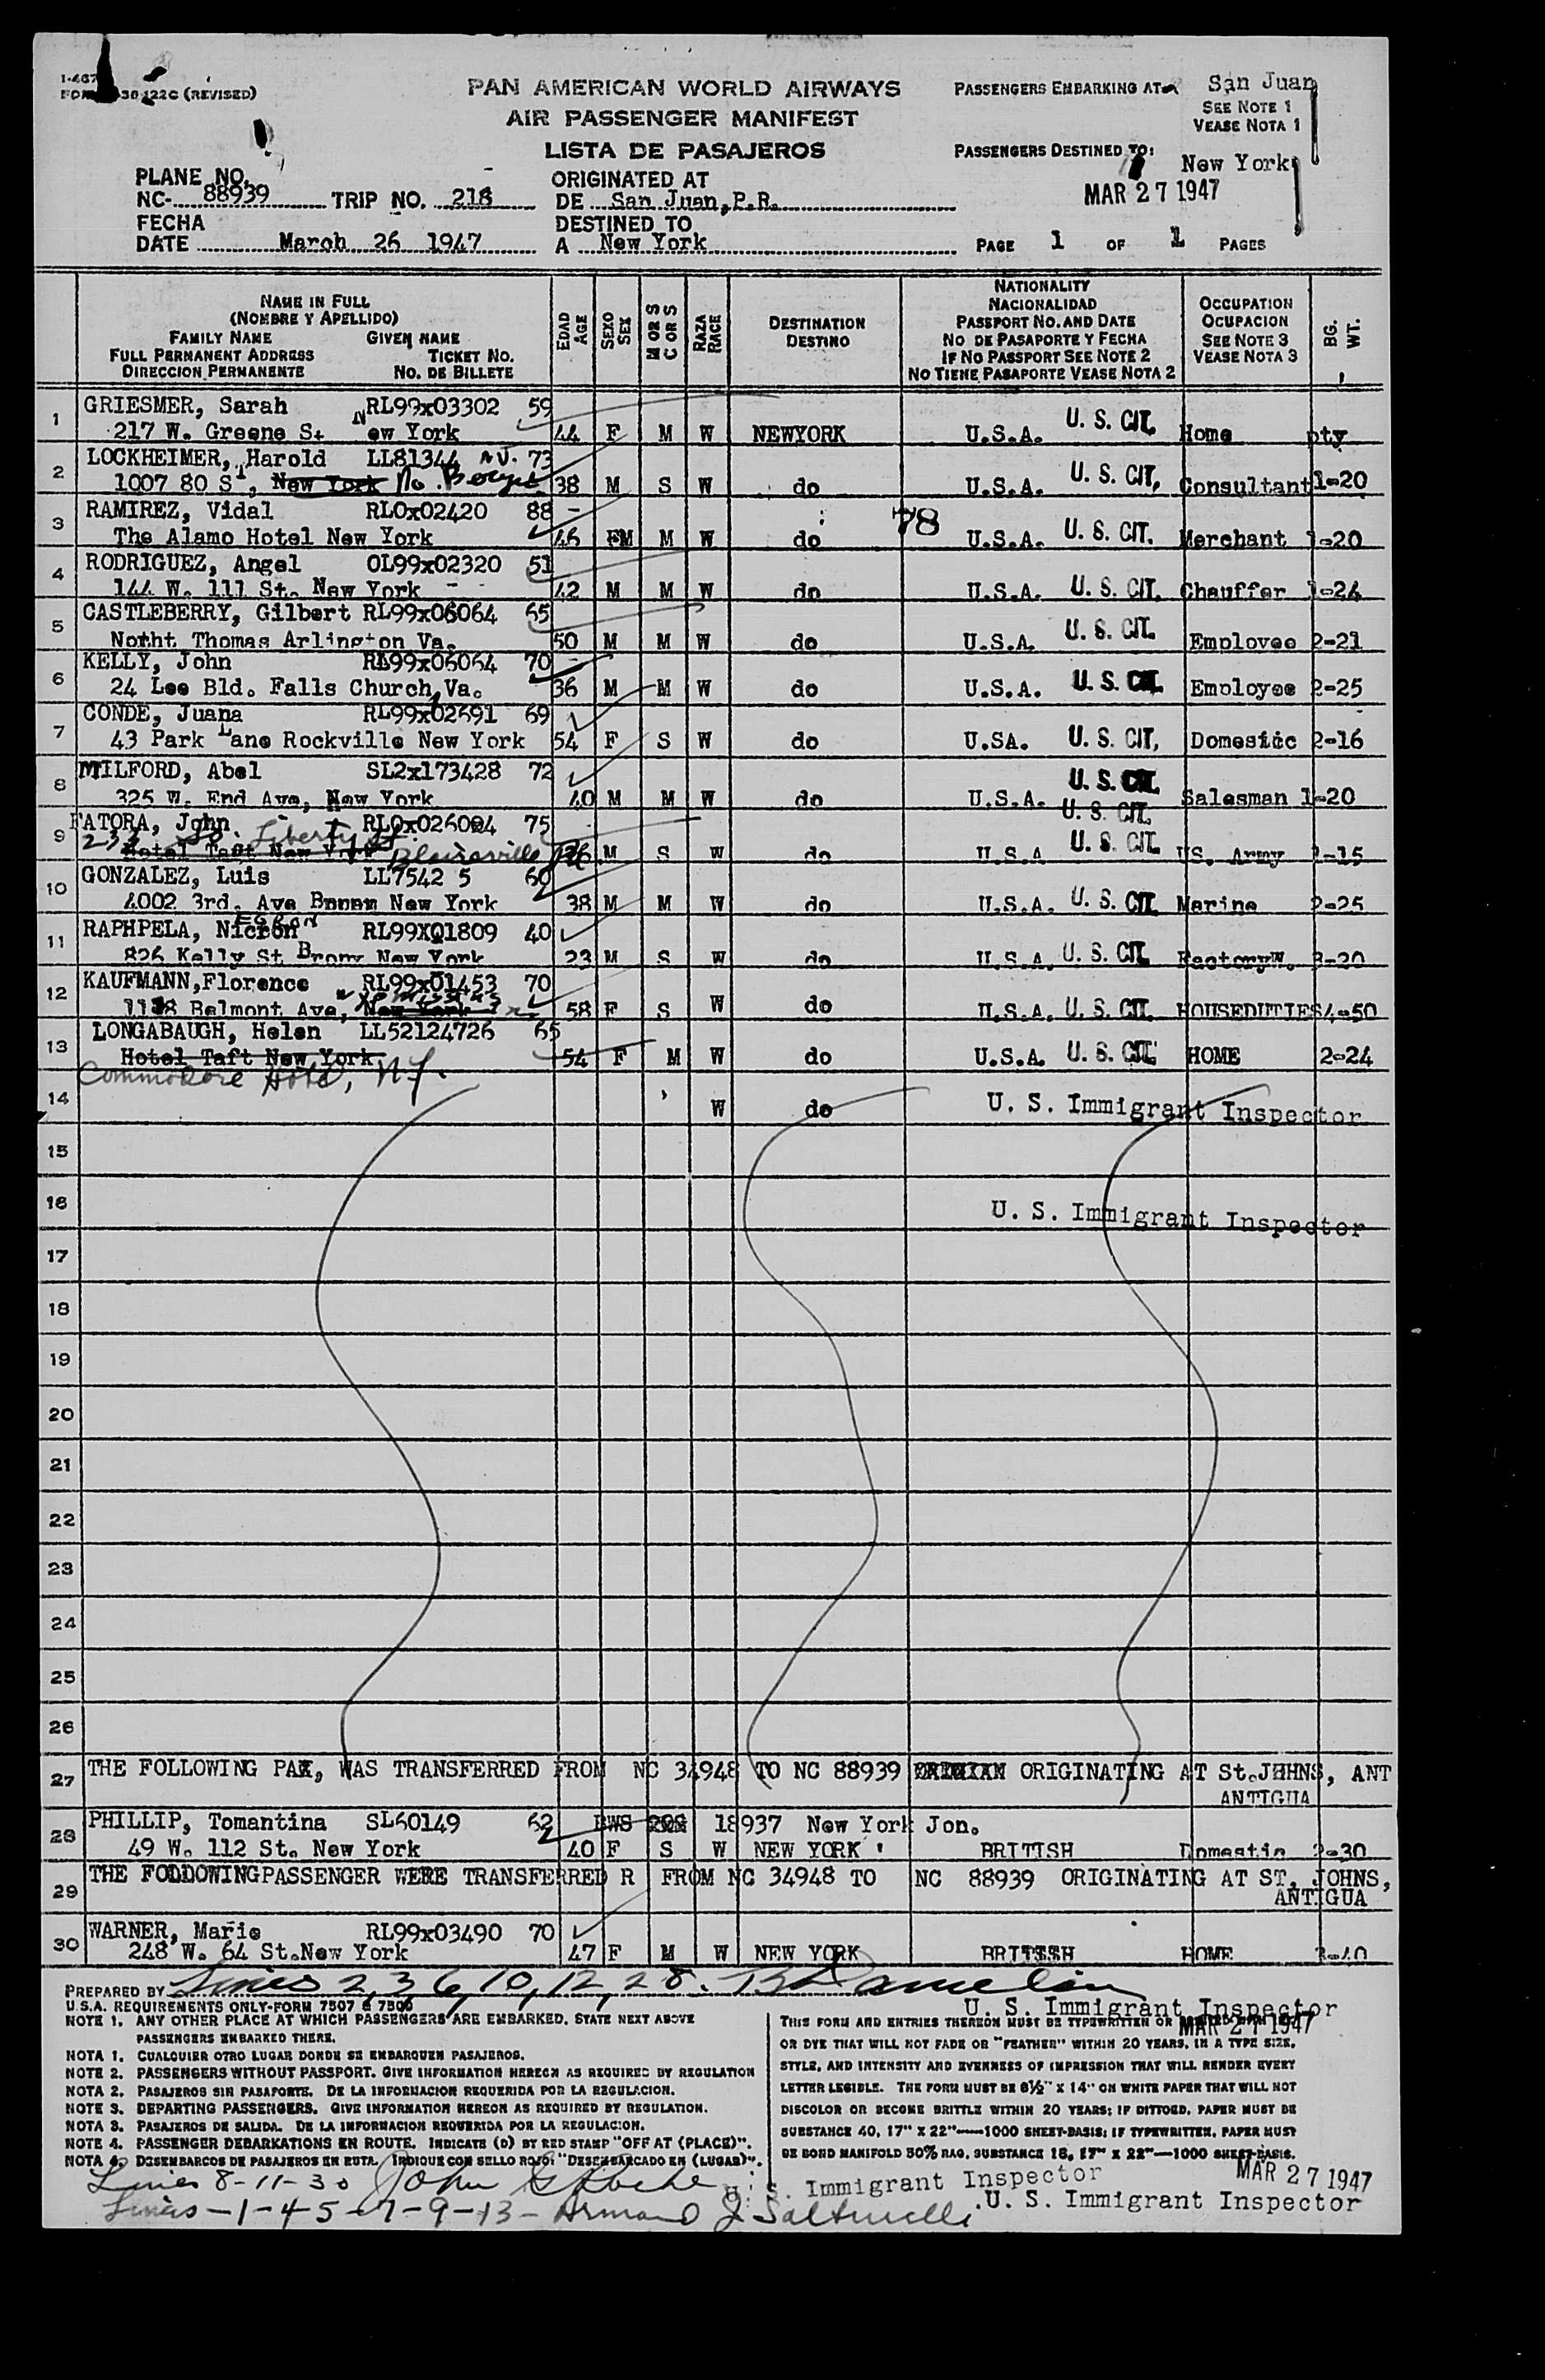 I-467
(REVISED)
PAN AMERICAN WORLD AIRWAYS
AIR PASSENGER MANIFEST
LISTA DE PASAJEROS
PASSENGERS EMBARKING AT San Juan
SEE NOTE 1
VEASE NOTA 1
PASSENGERS DESTINED TO: New York
MAR 27 1947
PLANE NO.
NC- 88939 TRIP NO. 218
ORIGINATED AT
DE San Juan, P.R.
FECHA
DATE March 26 1947
DESTINED TO
A New York
PAGE 1 OF 1 PAGES
NAME IN FULL
(NOMBRE Y APELLIDO)
FAMILY NAME GIVEN NAME
FULL PERMANENT ADDRESS TICKET NO.
DIRECCION PERMANENTE NO. DE BILLETE
EDAD AGE
SEXO SEX
M OR S C OR S
RAZA RACE
DESTINATION
DESTINO
NATIONALITY
NACIONALIDAD
PASSPORT NO. AND DATE
NO DE PASAPORTE Y FECHA
IF NO PASSPORT SEE NOTE 2
NO TIENE PASAPORTE VEASE NOTA 2
OCCUPATION
OCUPACION
SEE NOTE 3
VEASE NOTA 3
BG. WT.
1 GRIESMER, Sarah RL99x03302 59
217 W. Greene St New York 44 F M W NEWYORK U.S.A. U. S. CIT. Home pty
2 LOCKHEIMER, Harold LL81344 N.J. 73
1007 80 St, New York No. Bergen 38 M S W do U.S.A. U. S. CIT. Consultant 1-20
3 RAMIREZ, Vidal RL0x02420 88
The Alamo Hotel New York 46 FM M W do 78 U.S.A. U. S. CIT. Merchant 1-20
4 RODRIGUEZ, Angel OL99x02320 51
144 W. 111 St. New York 42 M M W do U.S.A. U. S. CIT. Chauffer 1-24
5 CASTLEBERRY, Gilbert RL99x06064 65
Notht Thomas Arlington Va. 50 M M W do U.S.A. U. S. CIT. Employee 2-21
6 KELLY, John RL99x06064 70
24 Lee Bld. Falls Church, Va. 36 M M W do U.S.A. U. S. CIT. Employee 2-25
7 CONDE, Juana RL99x02691 69
43 Park Lane Rockville New York 54 F S W do U.SA. U. S. CIT. Domestic 2-16
8 MILFORD, Abel SL2x173428 72
325 W. End Ave, New York 40 M M W do U.S.A. U. S. CIT. Salesman 1-20
U. S. CIT.
9 FATORA, John RL0x026004 75
Liberty St. Blairsville
Hotel Taft New York M S W do U.S.A U. S. CIT. US. Army 1-15
10 GONZALEZ, Luis LL7542 5 60
4002 3rd. Ave Bronx New York 38 M M W do U.S.A. U. S. CIT. Marine 2-25
EGRON
11 RAPHPELA, Nicron RL99XQ1809 40
826 Kelly St Bronx New York 23 M S W do U.S.A. U. S. CIT. FactoryW. 3-20
12 KAUFMANN,Florence RL99x01453 70
1138 Belmont Ave, New York 58 F S W do U.S.A. U. S. CIT. HOUSEDUTIES 4-50
13 LONGABAUGH, Helen LL52124726 65
Hotel Taft New York. 54 F M W do U.S.A. U. S. CIT. HOME 2-24
Commodore Hotel, N.Y.
14 W do U. S. Immigrant Inspector
15
16 U. S. Immigrant Inspector
17
18
19
20
21
22
23
24
25
26
27 THE FOLLOWING PAX, WAS TRANSFERRED FROM NC 34948 TO NC 88939 ORIGINATING AT St.JHHNS, ANT
ANTIGUA
28 PHILLIP, Tomantina SL60149 62 BWS 18937 New York Jon.
49 W. 112 St. New York 40 F S W NEW YORK BRITISH Domestic 2-30
29 THE FODDOWINGPASSENGER WERE TRANSFERRED R FROM NC 34948 TO NC 88939 ORIGINATING AT ST. JOHNS,
ANTIGUA
30 WARNER, Marie RL99x03490 70
248 W. 64 St.New York 47 F M W NEW YORK BRITISH HOME 3-40
PREPARED BY Lines 2, 3, 6, 10, 12, 28.
U. S. Immigrant Inspector
MAR 27 1947
U.S.A. REQUIREMENTS ONLY-FORM 7507 & 7506
NOTE 1. ANY OTHER PLACE AT WHICH PASSENGERS ARE EMBARKED. STATE NEXT ABOVE
PASSENGERS EMBARKED THERE.
NOTA 1. CUALQUIER OTRO LUGAR DONDE SE EMBARQUEN PASAJEROS.
NOTE 2. PASSENGERS WITHOUT PASSPORT. GIVE INFORMATION HEREON AS REQUIRED BY REGULATION
NOTA 2. PASAJEROS SIN PASAPORTE. DE LA INFORMACION REQUERIDA POR LA REGULACION.
NOTE 3. DEPARTING PASSENGERS. GIVE INFORMATION HEREON AS REQUIRED BY REGULATION.
NOTA 3. PASAJEROS DE SALIDA. DE LA INFORMACION REQUERIDA POR LA REGULACION.
NOTE 4. PASSENGER DEBARKATIONS EN ROUTE. INDICATE (D) BY RED STAMP "OFF AT (PLACE)".
NOTA 4. DESEMBARCOS DE PASAJEROS EN RUTA. INDIQUE CON SELLO ROJO: "DESEMBARCADO EN (LUGAR)".
THIS FORM AND ENTRIES THEREON MUST BE TYPEWRITTEN OR
OR DYE THAT WILL NOT FADE OR "FEATHER" WITHIN 20 YEARS, IN A TYPE SIZE,
STYLE, AND INTENSITY AND EVENNESS OF IMPRESSION THAT WILL RENDER EVERY
LETTER LEGIBLE. THE FORM MUST BE 8½" X 14" ON WHITE PAPER THAT WILL NOT
DISCOLOR OR BECOME BRITTLE WITHIN 20 YEARS; IF DITTOED, PAPER MUST BE
SUBSTANCE 40, 17" X 22"—1000 SHEET-BASIS; IF TYPEWRITTEN, PAPER MUST
BE BOND MANIFOLD 50% RAG, SUBSTANCE 16, 17" X 22"—1000 SHEET-BASIS.
Lines 8-11-30 John U. S. Immigrant Inspector MAR 27 1947
Lines-1-4-5-7-9-13- Armand J Saltinelli U. S. Immigrant Inspector